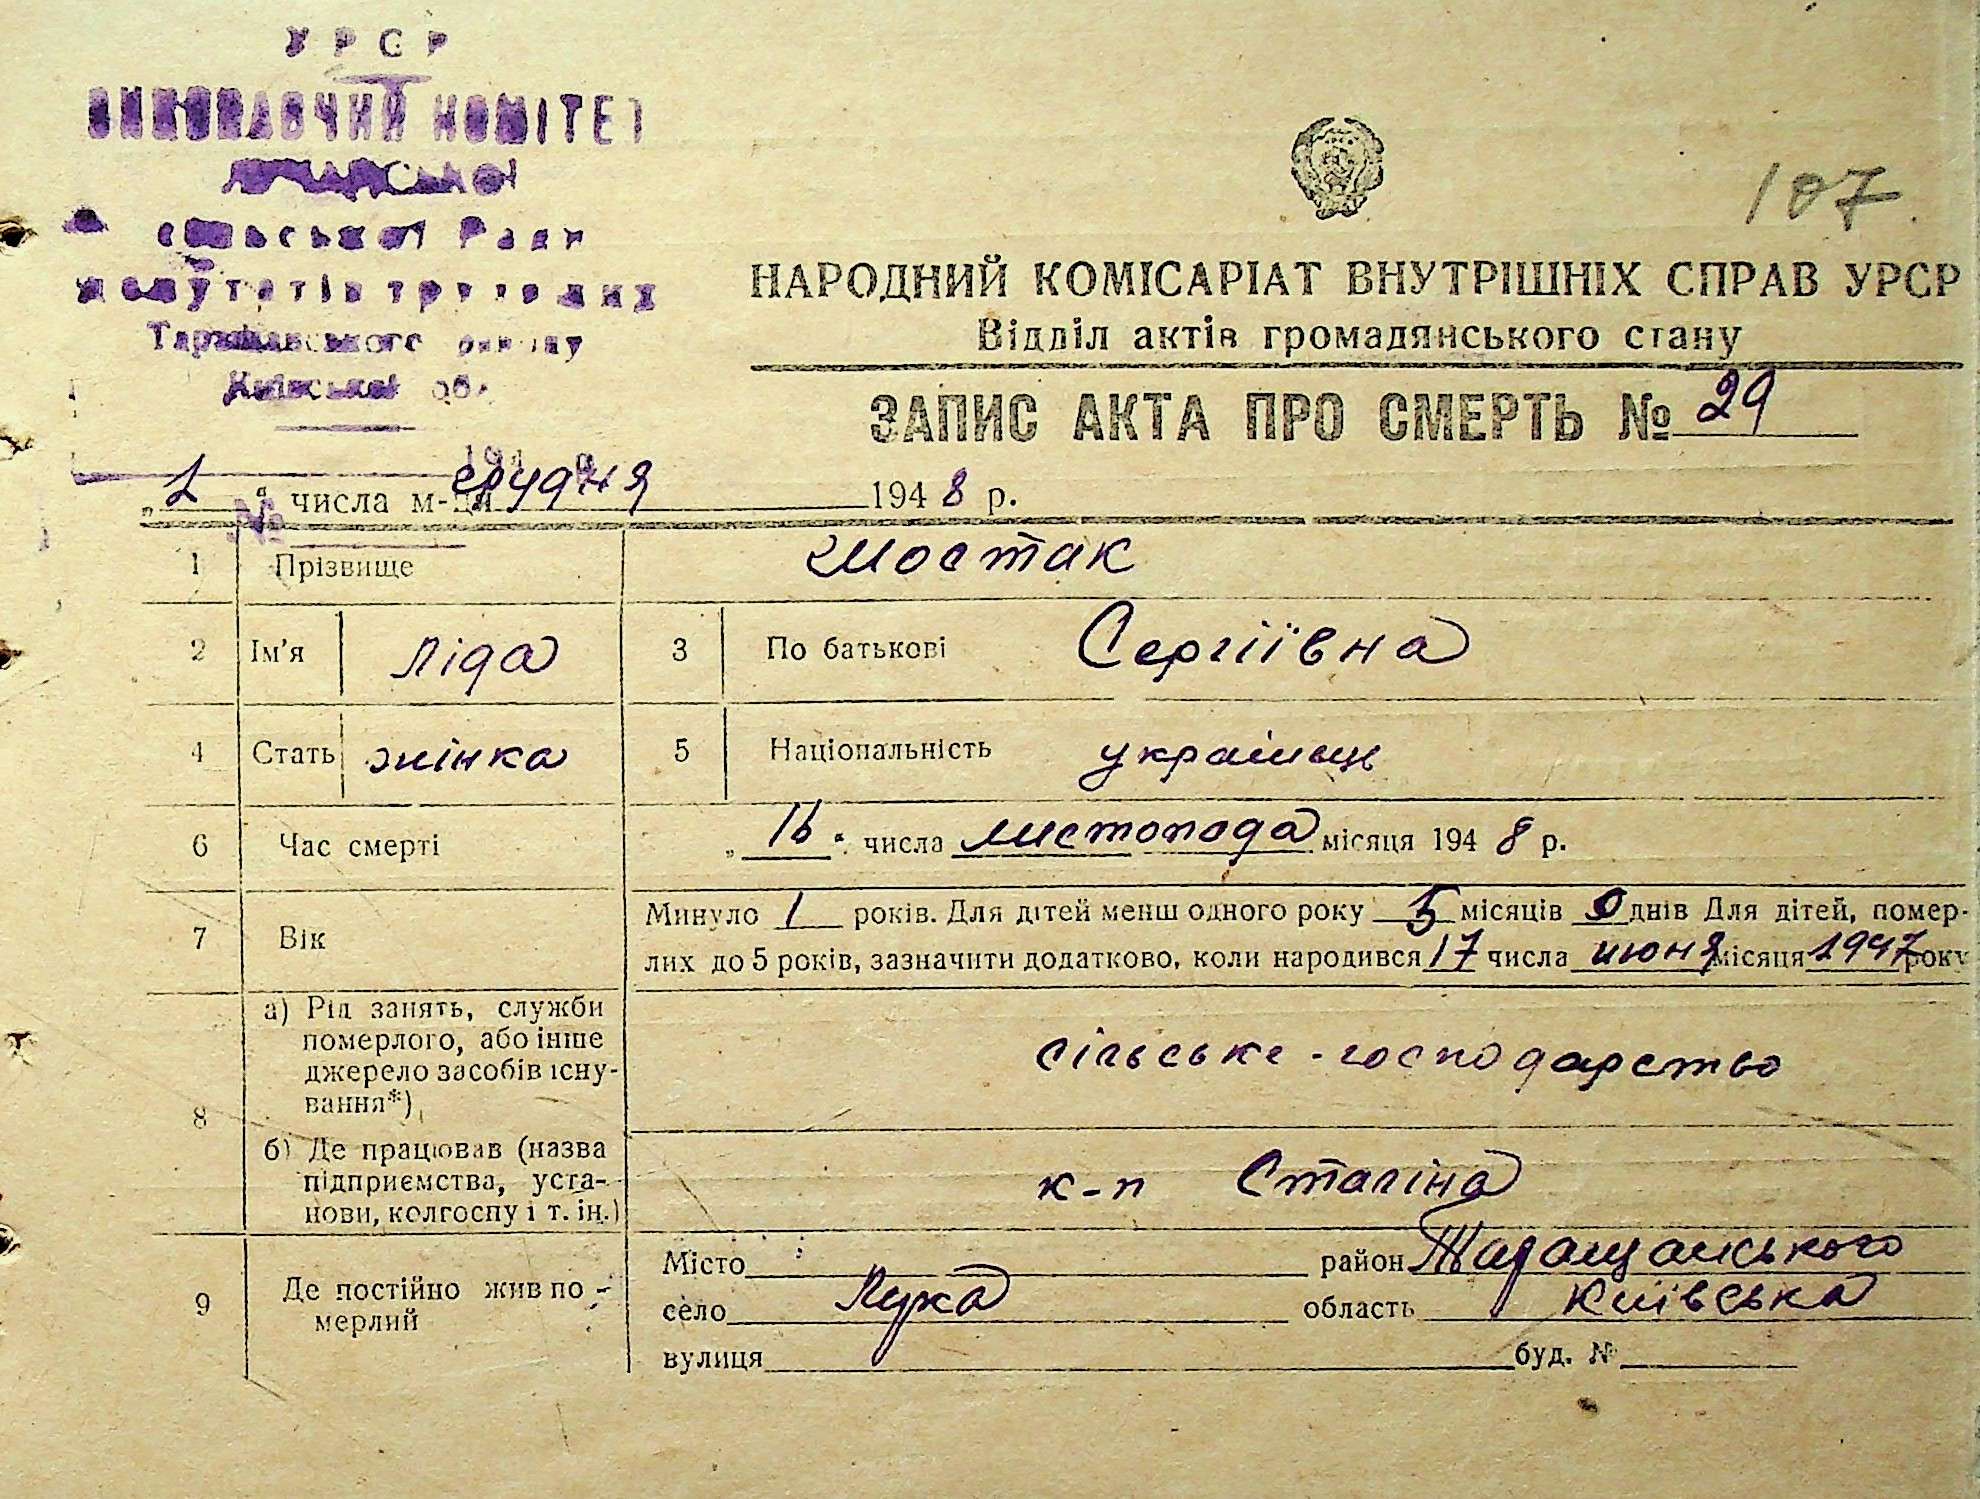 УРСР
ВИКОНАВЧИЙ КОМІТЕТ
сільської Ради
депутатів трудящих
Таращанського району
Київської обл.
107
НАРОДНИЙ КОМІСАРІАТ ВНУТРІШНІХ СПРАВ УРСР
Відділ актів громадянського стану
ЗАПИС АКТА ПРО СМЕРТЬ № 29
„1“ числа м-ця грудня 1948 р.
№
1 Прізвище Шостак
2 Ім'я Ліда 3 По батькові Сергіївна
4 Стать жінка 5 Національність українць
6 Час смерті „16“ числа листопада місяця 1948 р.
7 Вік Минуло 1 років. Для дітей менш одного року 5 місяців 0 днів Для дітей, помер-
лих до 5 років, зазначити додатково, коли народився 17 числа июня місяця 1947 року
8 а) Рід занять, служби
померлого, або інше
джерело засобів існу-
вання*)
сільське-господарство
б) Де працював (назва
підприємства, уста-
нови, колгоспу і т. ін.)
к-п Сталіна
9 Де постійно жив по-
мерлий
Місто район Таращанського
село Лука область Київська
вулиця буд. №